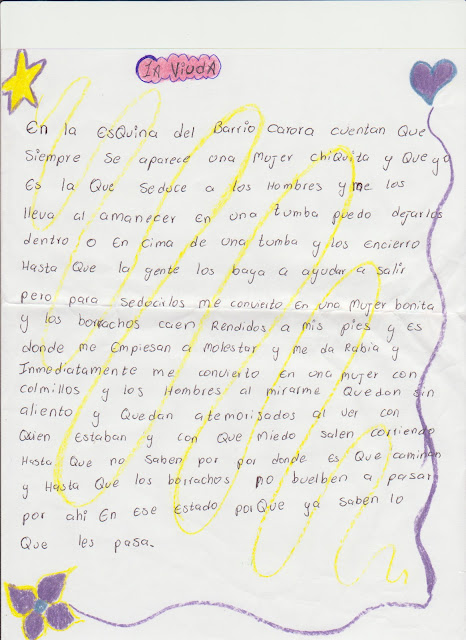 lA ViudA
En la EsQuina del Barrio Carora cuentan Que
Siempre Se aparece una Mujer chiQuita y Que yo
Es la Que Seduce a los Hombres y me los
lleva al amanecer en una tumba puedo dejarlos
dentro o En cima de una tumba y los encierro
Hasta Que la gente los baya a ayudar a salir
pero para Sedocirlos me convierto En una Mujer bonita
y los borrachos caen Rendidos a mis pies y Es
donde me Empiesan a Molestar y me da Rabia y
Inmediatamente me convierto En una mujer con
colmillos y los Hombres al mirarme Quedan sin
aliento y Quedan atemorisados al ver con
Quien Estaban y con Que Miedo salen corriendo
Hasta Que no Saben por por donde es Que caminan
y Hasta Que los borrachos no buelben a pasar
por ahi En Ese Estado porQue ya Saben lo
Que les pasa.